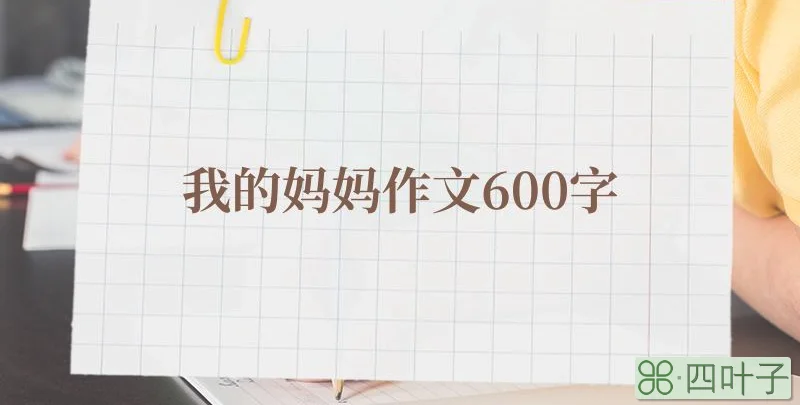 我的妈妈作文600字
四叶子